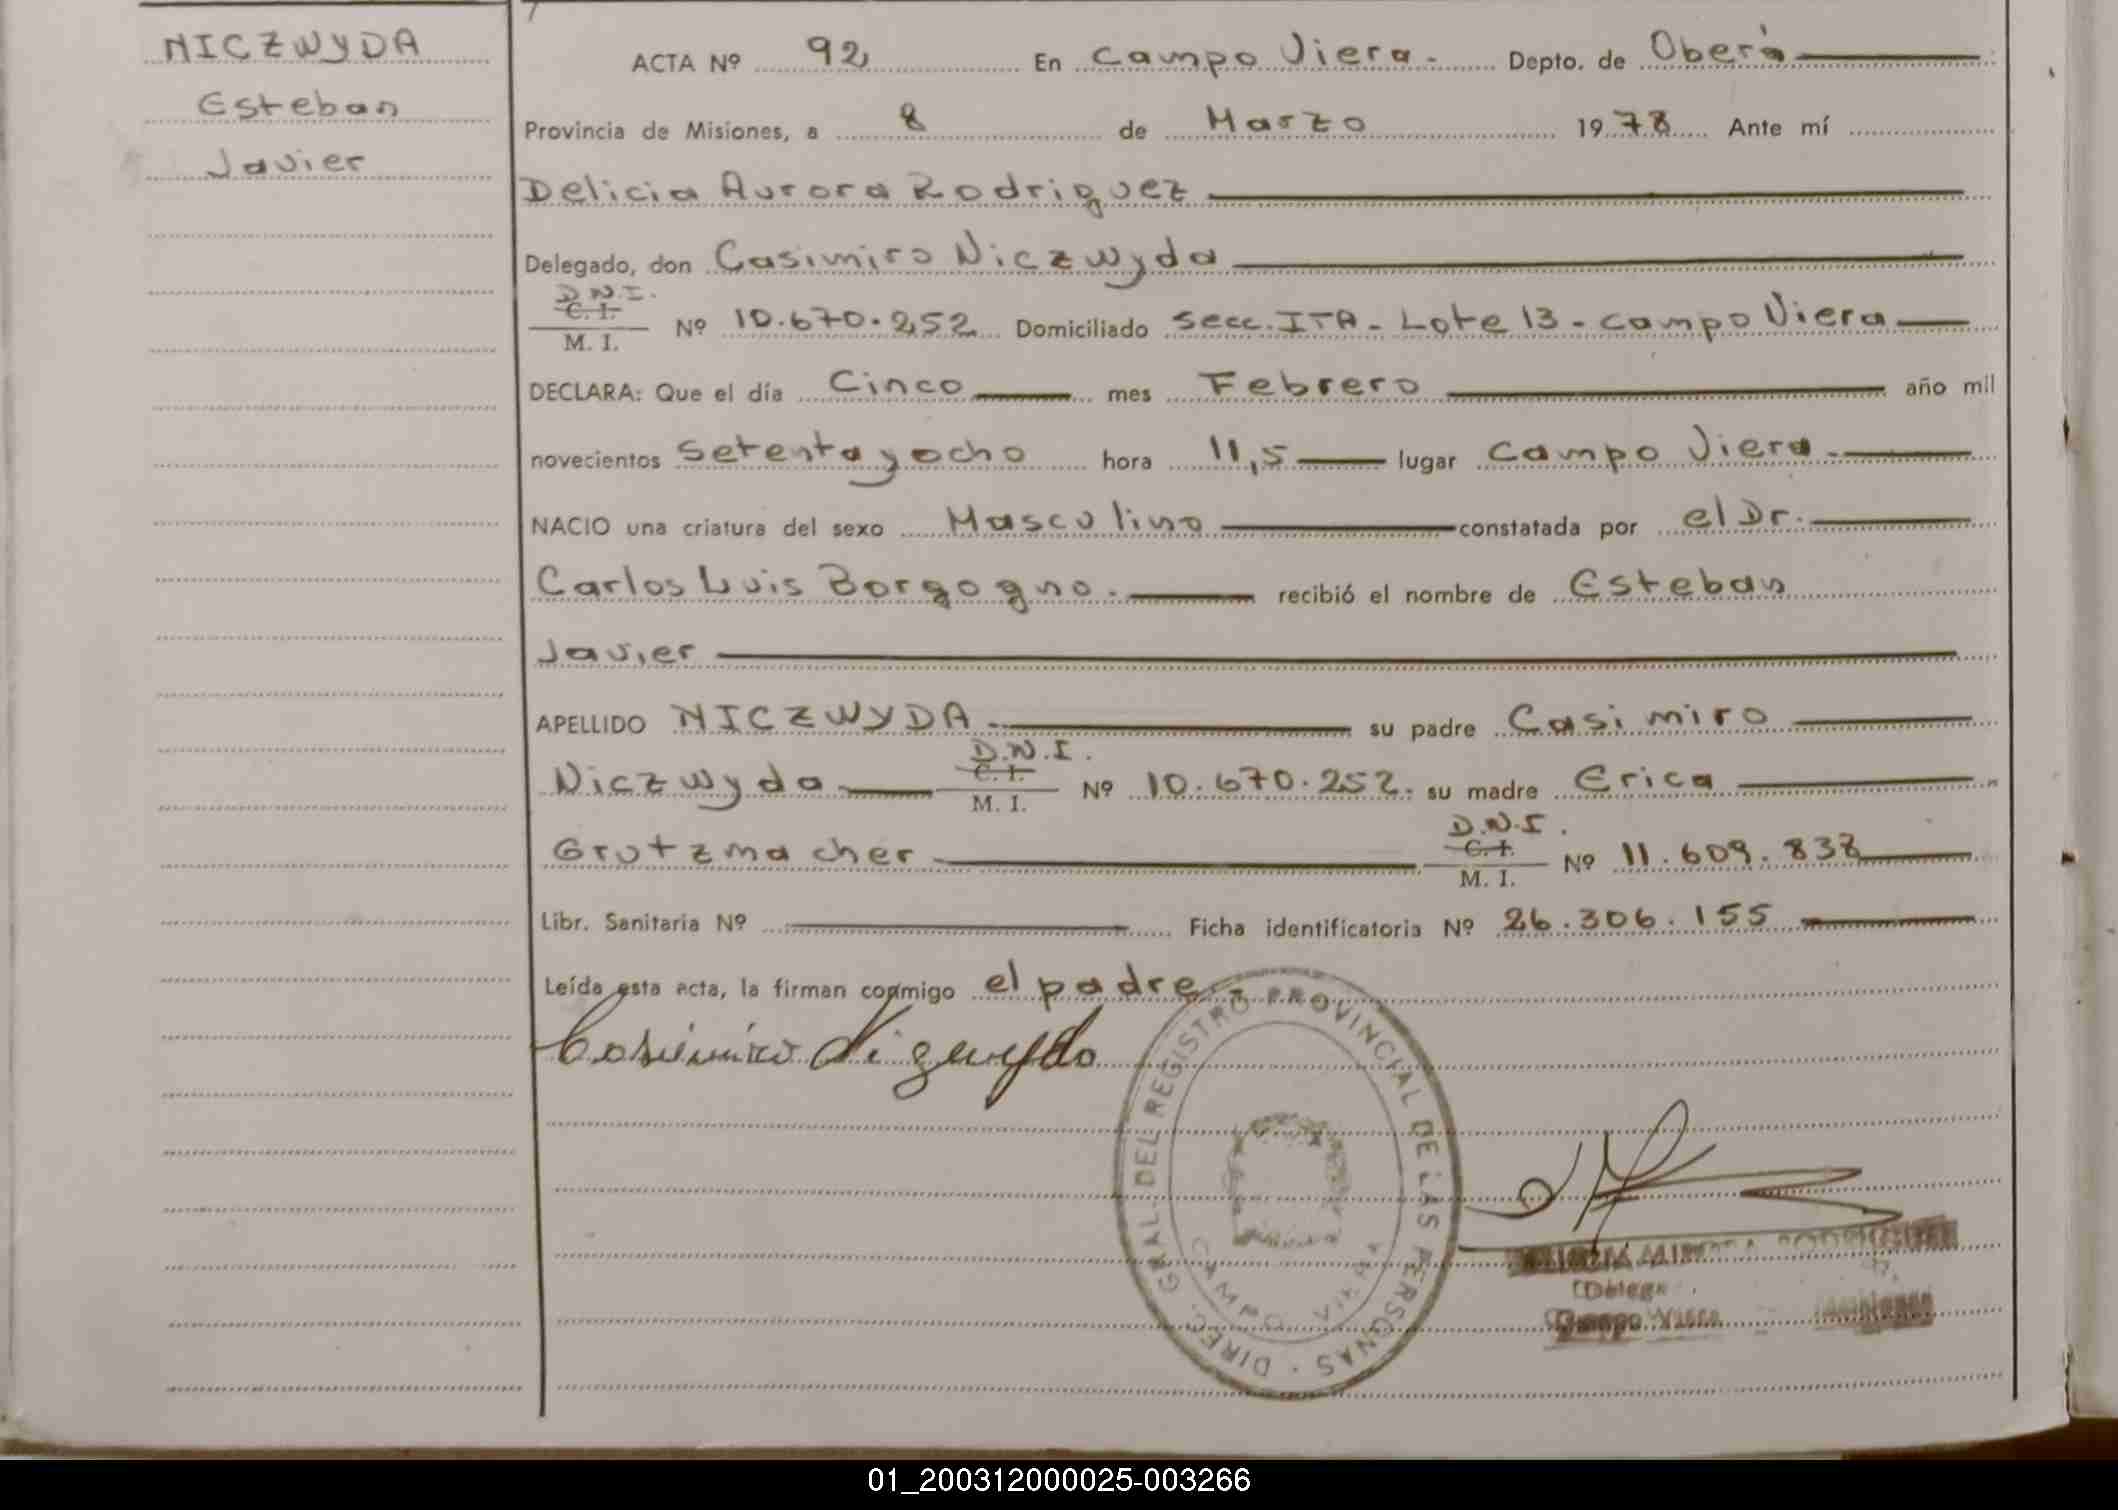 NICZWYDA
Esteban
Javier
ACTA Nº 92 En Campo Viera. Depto. de Oberá
Provincia de Misiones, a 8 de Marzo 1978 Ante mí
Delicia Aurora Rodriguez
Delegado, don Casimiro Niczwyda
D.N.I.
C. I.
M. I.
Nº 10.670.252 Domiciliado Secc. ITA - Lote 13 - Campo Viera
DECLARA: Que el día Cinco mes Febrero año mil
novecientos setenta y ocho hora 11,5 lugar Campo Viera
NACIO una criatura del sexo Masculino constatada por el Dr.
Carlos Luis Borgogno. recibió el nombre de Esteban
Javier
APELLIDO NICZWYDA su padre Casimiro
D.N.I.
C. I.
Niczwyda M. I. Nº 10.670.252. su madre Erica
D.N.I.
C. I.
Grutzmacher M. I. Nº 11.609.838
Libr. Sanitaria Nº Ficha identificatoria Nº 26.306.155
Leída esta acta, la firman conmigo el padre
Casimiro
DIREC. GRAL. DEL REGISTRO PROVINCIAL DE LAS PERSONAS
CAMPO VIERA
RODRIGUEZ
Delega
Campo Viera Misiones
01_200312000025-003266